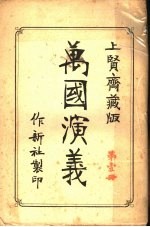 上賢齋藏版
萬國演義
作新社製印